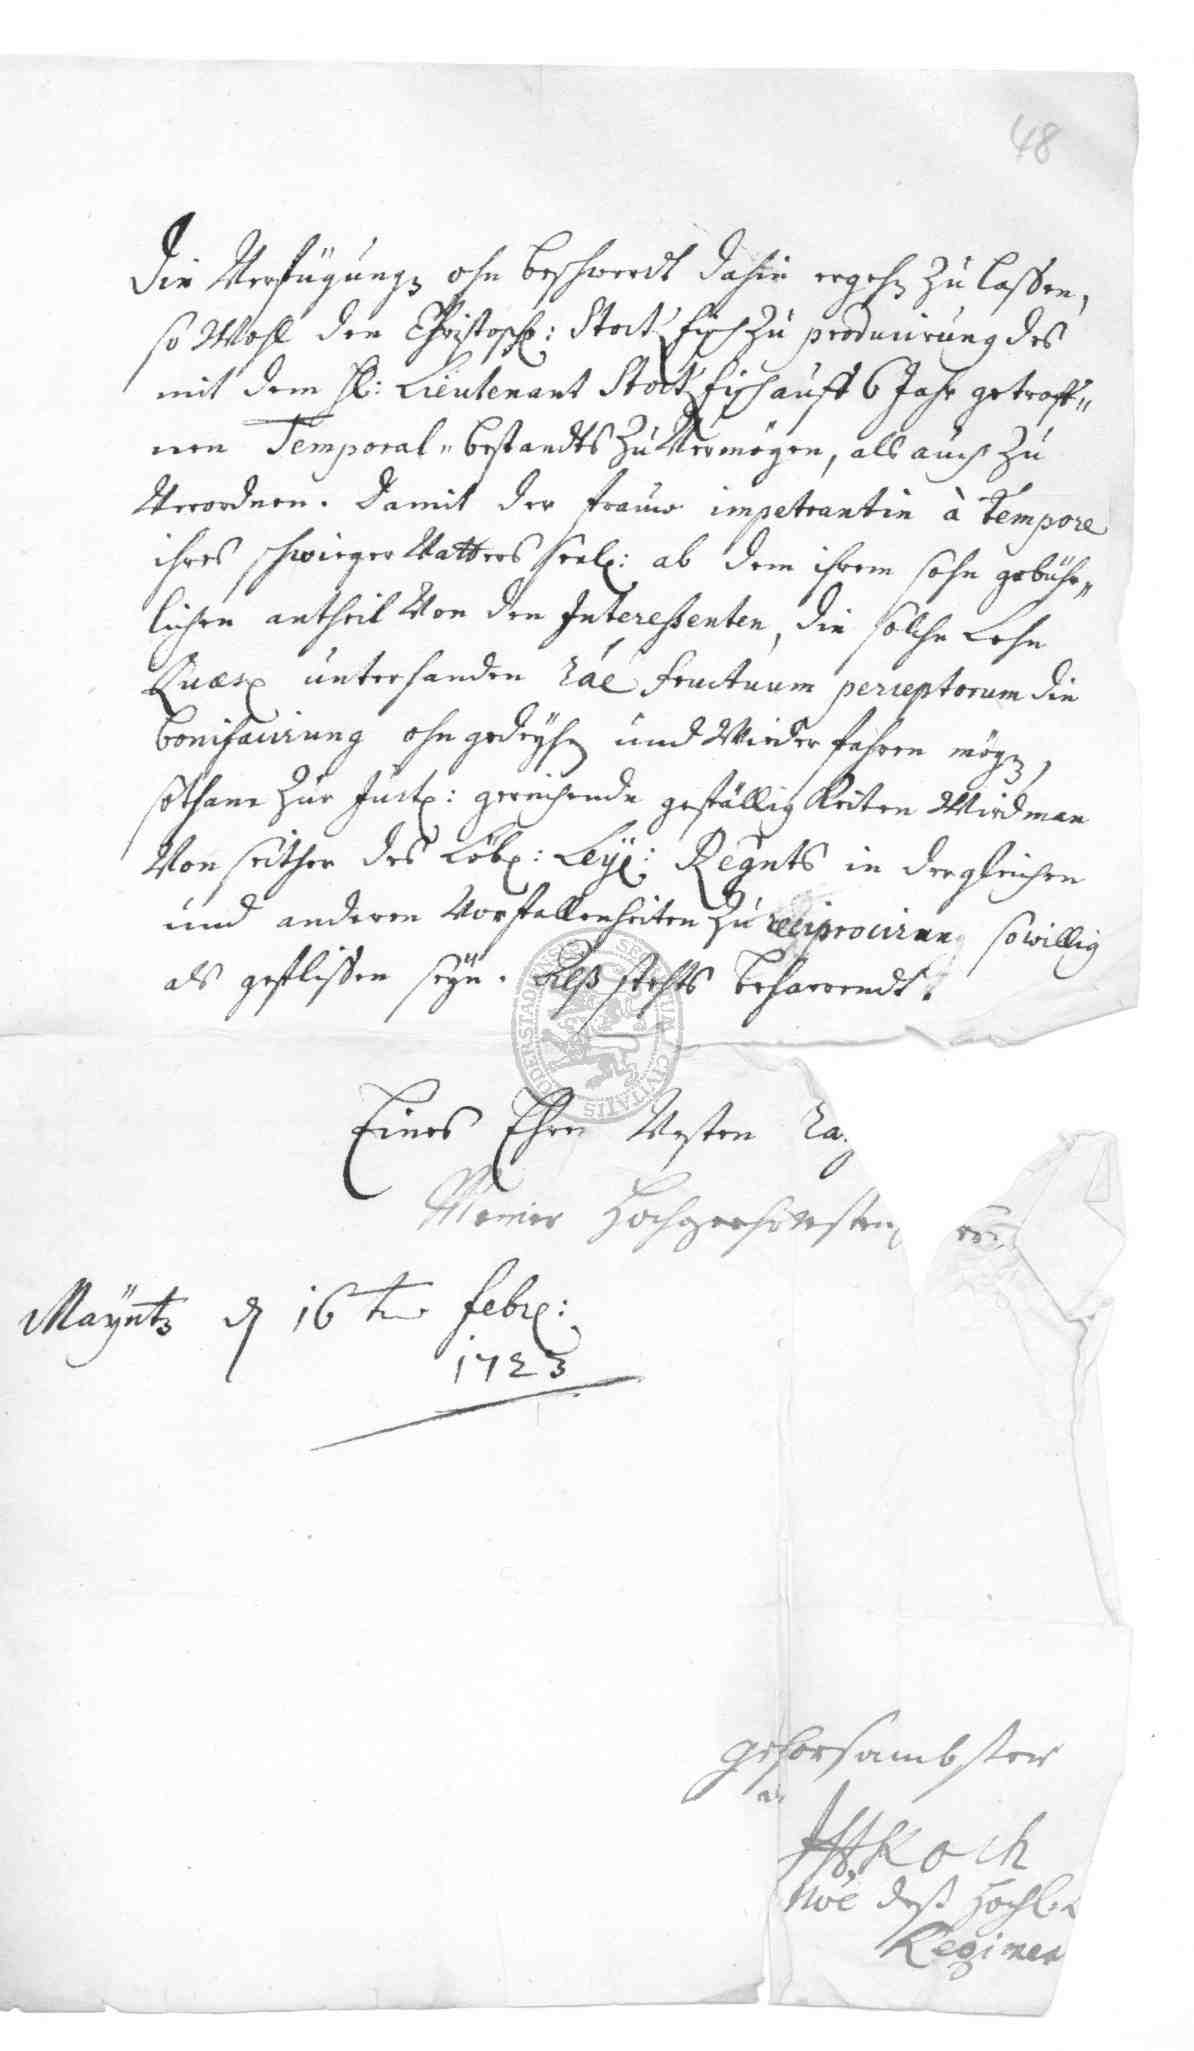 48
Die Verfügung ohn beschwerdt dahin ergehen zu lassen,
so Wohl den Christoph: Stockfisch zu producirung des
mit dem H: Lieutenant Stockfisch auff 6 Jahr getroff"
nen Temporal"bestandts zu Vermögen, als auch zu
Verordnen. Damit der frauw impetrantin à tempore
ihres schwieger Vatters seel: ab dem ihrem sohn gebühr"
lichen antheil Von den Interessenten, die solche Lehn
Quæst unterhanden rãe fructuum perceptorum die
bonificirung ohn gedeyhen und Wiederfahren mögen,
sothane zur Just: gereichende gefälligkeiten Wird man
Von seithen des Löbl: Leyl: Regnts in dergleichen
und anderen Vorfallenheiten zu reciprocirung so willig
als geflissen seyn. Alß stehts beharrendt.
Eines Ehren Vesten Ra
Meiner Hochgeehrtesten
Mayntz d 16ten febr:
1723
gehorsambster
Koch
Nõe deß Hochl
Regimen
SECRETUM CIVITATIS DUDERSTADENSIS